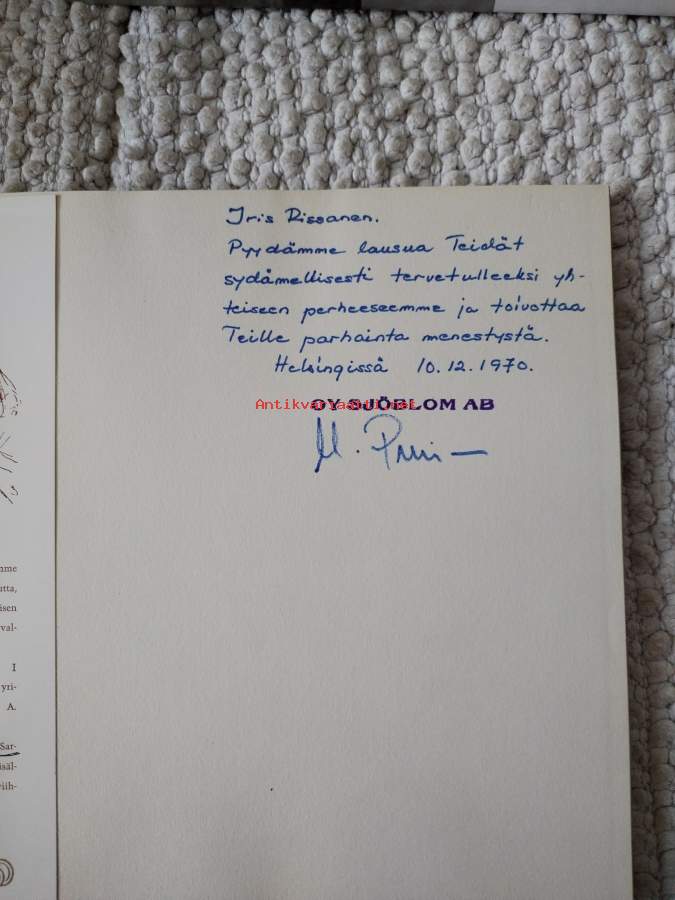 Iris Rissanen.
Pyydämme lausua Teidät
sydämellisesti tervetulleeksi yh-
teiseen perheeseemme ja toivottaa
Teille parhainta menestystä.
Helsingissä 10.12.1970.
OY SJÖBLOM AB
Antikvariaatti.net
M.
mme
utta,
isen
rval-
I
yri-
A.
Sar-
isäl-
viih-